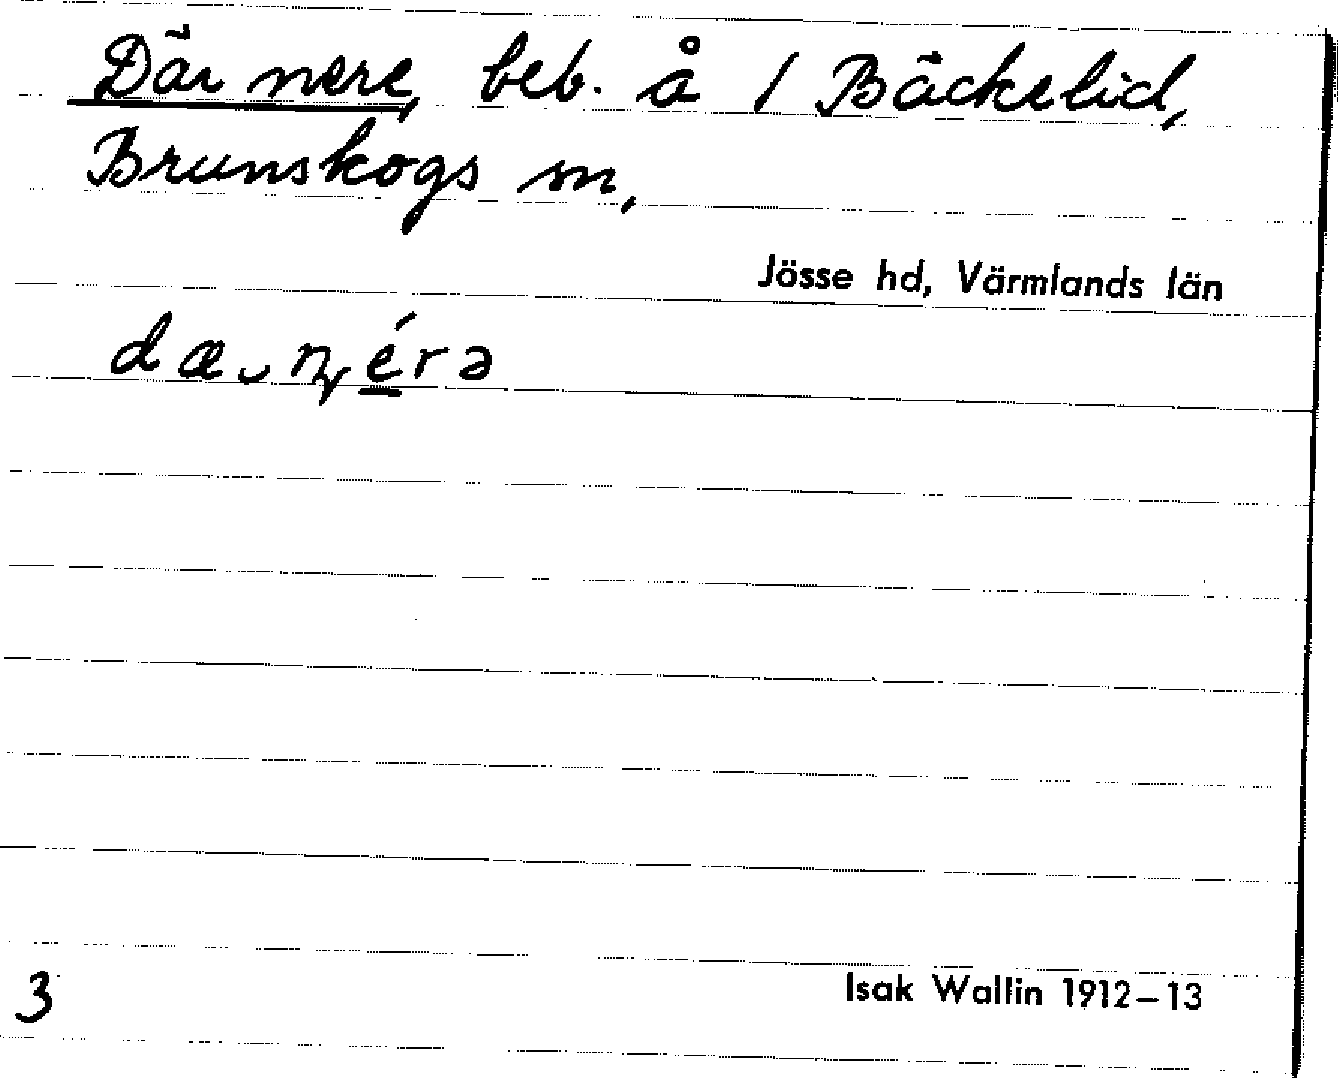 Där nere, beb. å 1 Bäckelid,
Brunskogs sn,
Jösse hd, Värmlands län
dæ‿ɳérə
3
Isak Wallin 1912–13